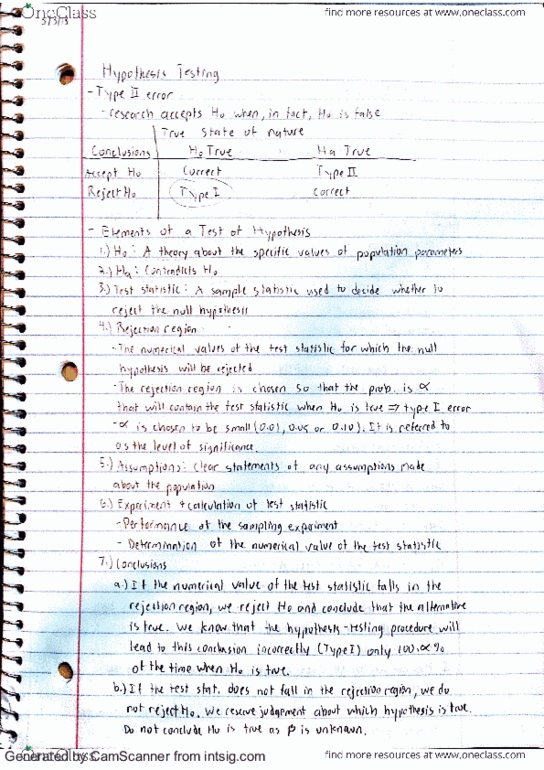 OneClass
find more resources at www.oneclass.com
3/3/15
Hypothesis Testing
- Type II error
- research accepts Ho when, in fact, Ho is false
True State of nature
Conclusions Ho True Ha True
Accept Ho Correct Type II
Reject Ho Type I correct
- Elements of a Test of Hypothesis
1.) Ho: A theory about the specific values of population parameters
2.) Ha: Contradicts Ho
3.) Test statistic: A sample statistic used to decide whether to
reject the null hypothesis
4.) Rejection region
- The numerical values of the test statistic for which the null
hypothesis will be rejected
- The rejection region is chosen so that the prob. is α
that will contain the test statistic when Ho is true ⇒ type I error
- α is chosen to be small (0.01, 0.05 or 0.10). It is referred to
as the level of significance.
5.) Assumptions: clear statements of any assumptions made
about the population
6.) Experiment + calculation of test statistic
- Performance of the sampling experiment
- Determination of the numerical value of the test statistic
7.) Conclusions
a.) If the numerical value of the test statistic falls in the
rejection region, we reject Ho and conclude that the alternative
is true. We know that the hypothesis-testing procedure will
lead to this conclusion incorrectly (Type I) only 100·α%
of the time when Ho is true.
b.) If the test stat. does not fall in the rejection region, we do
not reject Ho. We reserve judgement about which hypothesis is true.
Do not conclude Ho is true as β is unknown.
OneClass
Generated by CamScanner from intsig.com
find more resources at www.oneclass.com